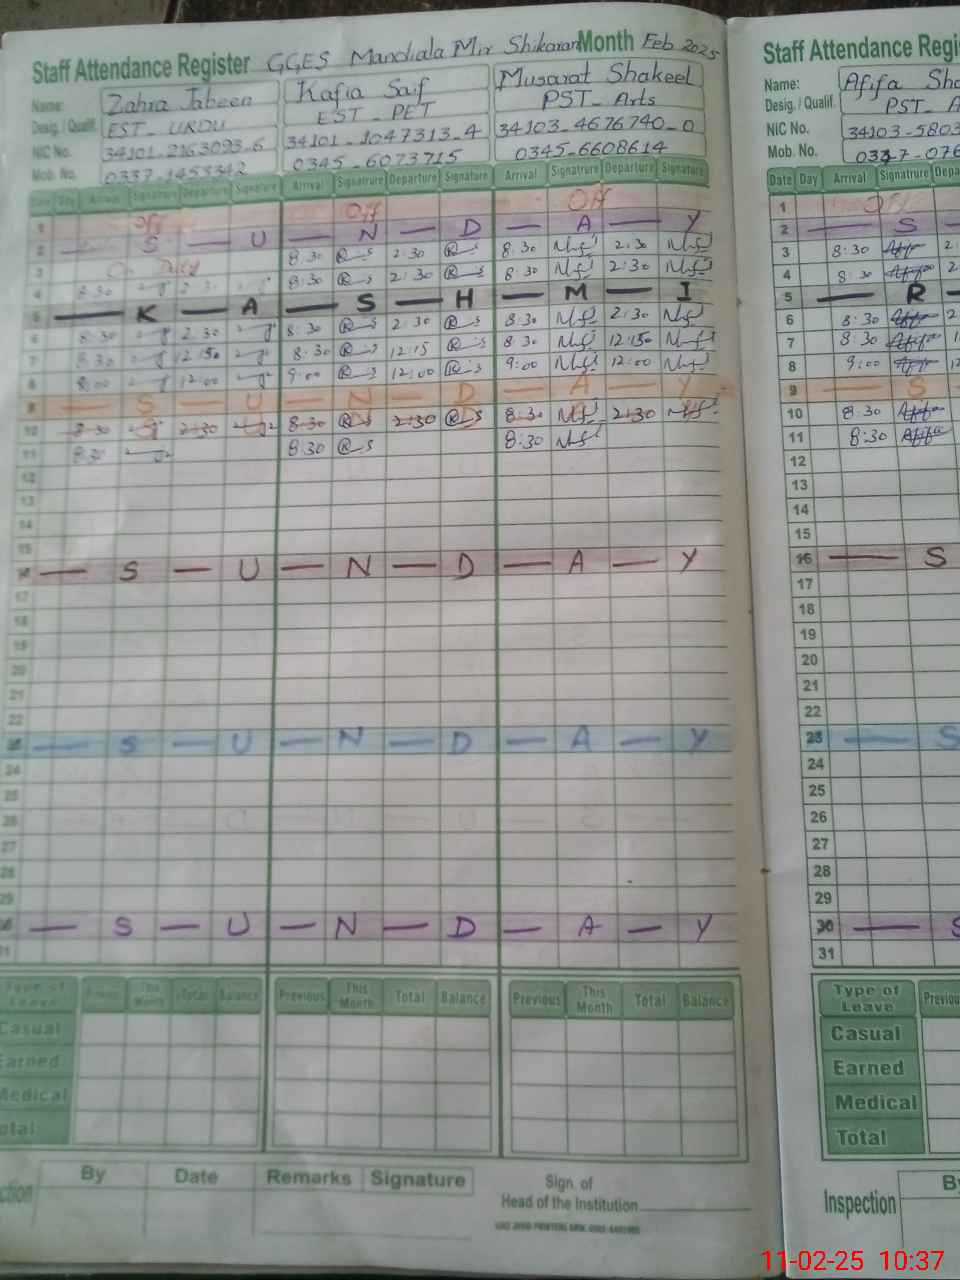 Staff Attendance Register GGES Mandiala Mir Shikaran Month Feb 2025
Name: Zahra Jabeen Kafia Saif Musarat Shakeel
Desig. / Qualif. EST - URDU EST - PET PST - Arts
NIC No. 34101-2163093-6 34101-1047313-4 34103-4676740-0
Mob. No. 0337-1453342 0345-6073715 0345-6608614
Date Day Arrival Signatrure Departure Signature Arrival Signatrure Departure Signature Arrival Signatrure Departure Signature
1 Off Off Off
2 — S — U — N — D — A — Y
3 On Duty 8:30 2:30 8:30 2:30
4 8:30 2:30 8:30 2:30 8:30 2:30
5 — K — A — S — H — M — I
6 8:30 2:30 8:30 2:30 8:30 2:30
7 8:30 12:150 8:30 12:15 8:30 12:150
8 9:00 12:00 9:00 12:00 9:00 12:00
9 — S — U — N — D — A — Y
10 8:30 2:30 8:30 2:30 8:30 2:30
11 8:30 8:30 8:30
12
13
14
15
16 — S — U — N — D — A — Y
17
18
19
20
21
22
23 — S — U — N — D — A — Y
24
25
26
27
28
29
30 — S — U — N — D — A — Y
31
Type of Leave Previous This Month Total Balance Previous This Month Total Balance Previous This Month Total Balance
Casual
Earned
Medical
Total
By Date Remarks Signature
Sign. of
Head of the Institution
Staff Attendance Regi
Name: Afifa Sha
Desig. / Qualif. PST - A
NIC No. 34103-5803
Mob. No. 0337-076
Date Day Arrival Signatrure Depa
1 Off
2 — S
3 8:30 2
4 8:30 2
5 — R
6 8:30 2
7 8:30 1
8 9:00 12
9 — S
10 8:30
11 8:30
12
13
14
15
16 — S
17
18
19
20
21
22
23 — S
24
25
26
27
28
29
30 — S
31
Type of Leave Previou
Casual
Earned
Medical
Total
Inspection B
11-02-25 10:37